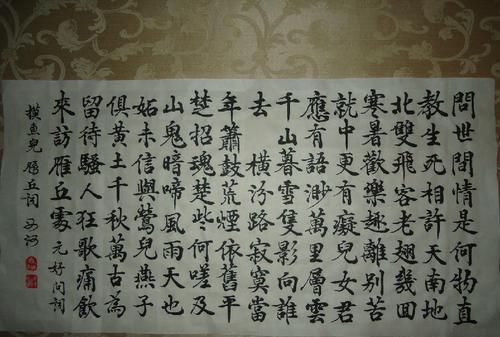 問世間情是何物直
教生死相許天南地
北雙飛客老翅幾囬
寒暑歡樂趣離別苦
就中更有癡兒女君
應有語渺萬里層雲
千山暮雪隻影向誰
去 橫汾路寂寞當
年簫鼓荒煙依舊平
楚招魂楚些何嗟及
山鬼暗啼風雨天也
妬未信與鶯兒燕子
俱黃土千秋萬古為
留待騷人狂歌痛飲
來訪雁丘處 元好问词
摸鱼兒 雁丘词